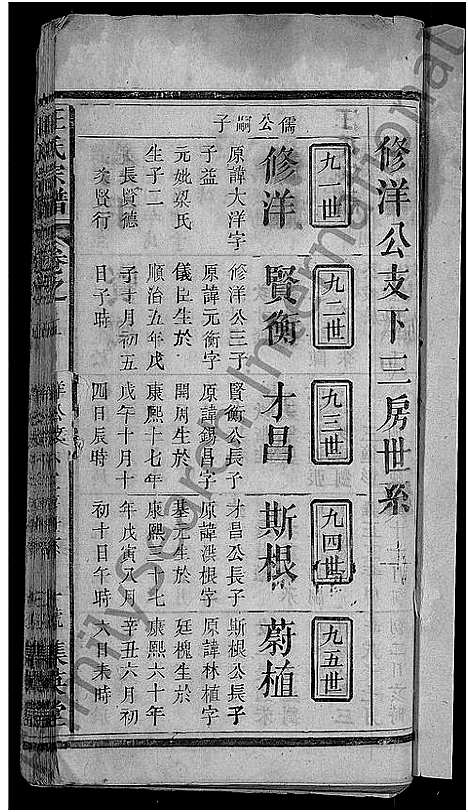 修洋公支下三房世系
九一世
修洋
儒公嗣子
原諱大洋字
子益
元妣梁氏
生子二
長賢德
次賢行
九二世
賢衡
修洋公三子
原諱元衡字
儀臣生於
順治五年戊
子十月初五
日子時
九三世
才昌
賢衡公長子
原諱錫昌字
開周生於
康熙十七年
戊午十月十
四日辰時
九四世
斯根
才昌公長子
原諱洪根字
基元生於
康熙三十七
年戊寅八月
初十日午時
九五世
蔚植
斯根公長子
原諱林植字
廷槐生於
康熙六十年
辛丑六月初
六日未時
王氏宗譜
集英堂